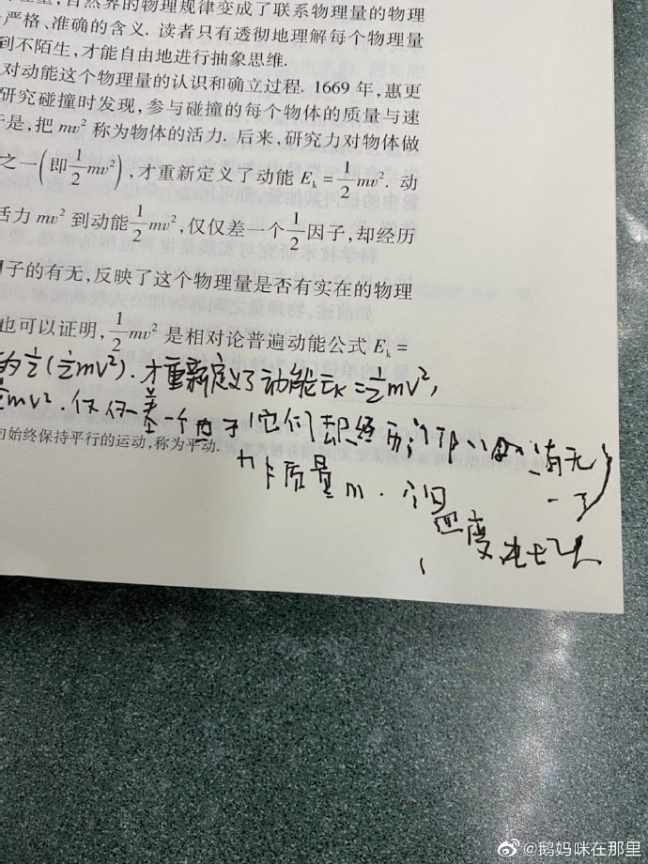 自然界的物理规律变成了联系物理量的物理
严格、准确的含义. 读者只有透彻地理解每个物理量
到不陌生, 才能自由地进行抽象思维.
对动能这个物理量的认识和确立过程. 1669 年, 惠更
研究碰撞时发现, 参与碰撞的每个物体的质量与速
于是, 把 mv² 称为物体的活力. 后来, 研究力对物体做
之一(即½mv²), 才重新定义了动能 Eₖ=½mv². 动
活力 mv² 到动能½mv², 仅仅差一个½因子, 却经历
因子的有无, 反映了这个物理量是否有实在的物理
也可以证明, ½mv² 是相对论普遍动能公式 Eₖ=
的½(½mv²). 才重新定义了动能Eₖ=½mv²,
½mv². 仅仅差一个因子 它们却经历
始终保持平行的运动, 称为平动.
质量m. 温度
@鹅妈咪在那里